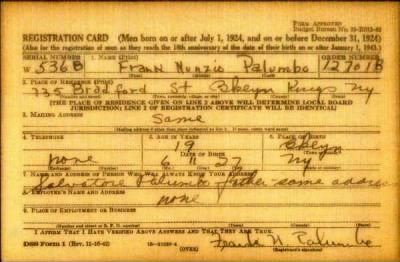 FORM APPROVED
Budget Bureau No. 33-R012-42
REGISTRATION CARD (Men born on or after July 1, 1924, and on or before December 31, 1924)
(Also for the registration of men as they reach the 18th anniversary of the date of their birth on or after January 1, 1943.)
SERIAL NUMBER 1. NAME (Print) ORDER NUMBER
W 536B Frank Nunzio Palumbo 12701B
2. PLACE OF RESIDENCE (Print)
735 Bradford St Bklyn Kings Ny
[THE PLACE OF RESIDENCE GIVEN ON LINE 2 ABOVE WILL DETERMINE LOCAL BOARD
JURISDICTION; LINE 2 OF REGISTRATION CERTIFICATE WILL BE IDENTICAL]
3. MAILING ADDRESS
Same
4. TELEPHONE 5. AGE IN YEARS 6. PLACE OF BIRTH
19 Bklyn
DATE OF BIRTH
none 6 11 27 Ny
7. NAME AND ADDRESS OF PERSON WHO WILL ALWAYS KNOW YOUR ADDRESS
Salvatore Palumbo father same address
8. EMPLOYER'S NAME AND ADDRESS
none
9. PLACE OF EMPLOYMENT OR BUSINESS
I AFFIRM THAT I HAVE VERIFIED ABOVE ANSWERS AND THAT THEY ARE TRUE.
DSS Form 1 (Rev. 11-16-42) (OVER) Frank N. Palumbo
(Registrant's signature)